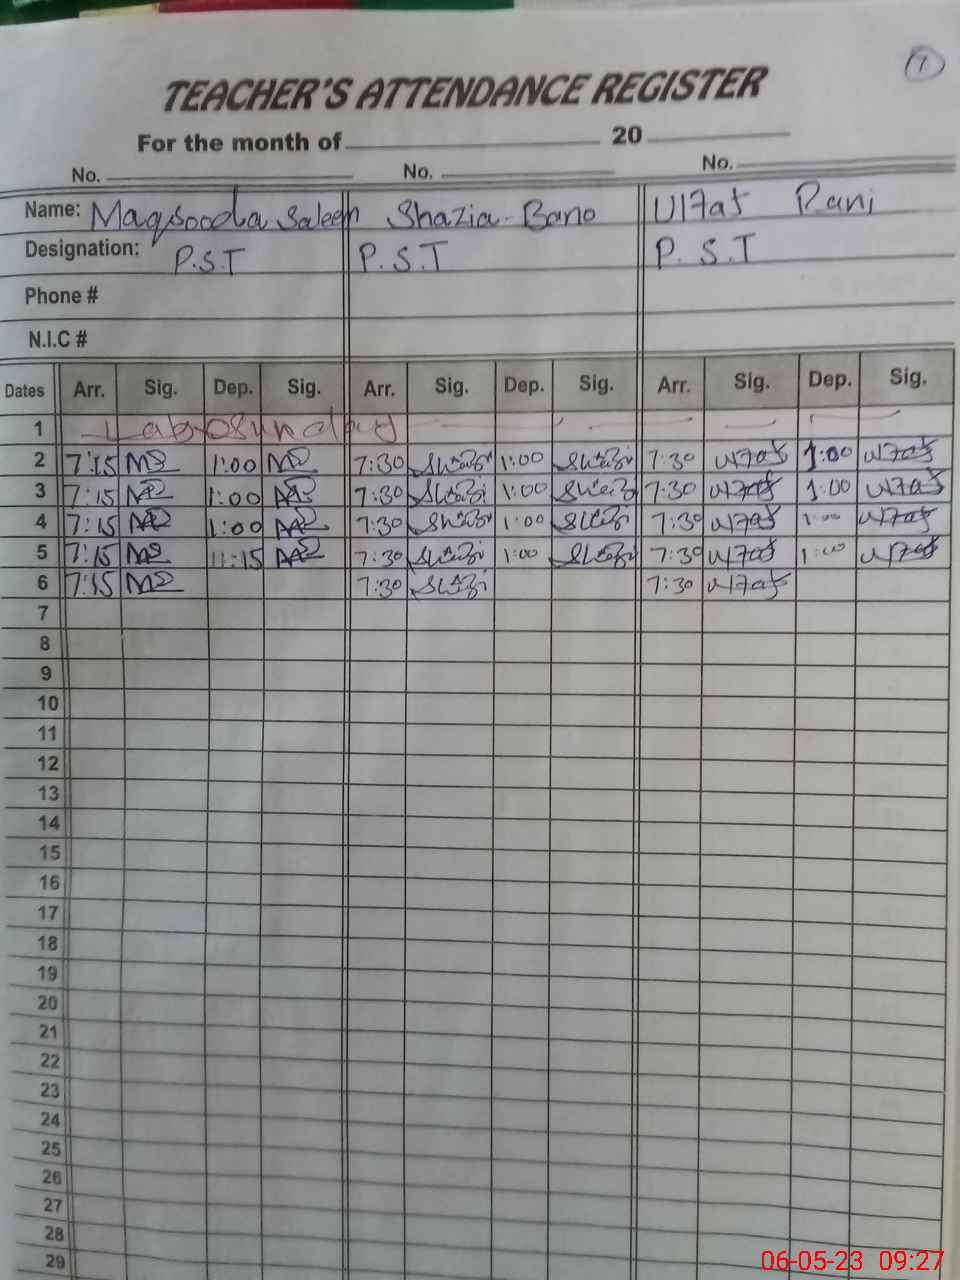 1
TEACHER'S ATTENDANCE REGISTER
For the month of 20
No. No. No.
Name: Maqsooda Saleem Shazia-Bano Ulfat Rani
Designation: P.S.T P.S.T P.S.T
Phone #
N.I.C #
Dates Arr. Sig. Dep. Sig. Arr. Sig. Dep. Sig. Arr. Sig. Dep. Sig.
1
2 7:15 MS 1:00 MS 7:30 1:00 7:30 Ulfat 1:00 Ulfat
3 7:15 1:00 7:30 1:00 7:30 Ulfat 1:00 Ulfat
4 7:15 1:00 7:30 1:00 7:30 Ulfat 1:00 Ulfat
5 7:15 MS 11:15 7:30 1:00 7:30 Ulfat 1:00 Ulfat
6 7:15 MS 7:30 7:30 Ulfat
7
8
9
10
11
12
13
14
15
16
17
18
19
20
21
22
23
24
25
26
27
28
29
06-05-23 09:27